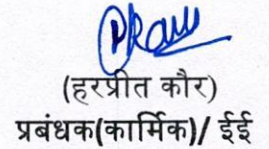 (हरप्रीत कौर)
प्रबंधक(कार्मिक)/ ईई